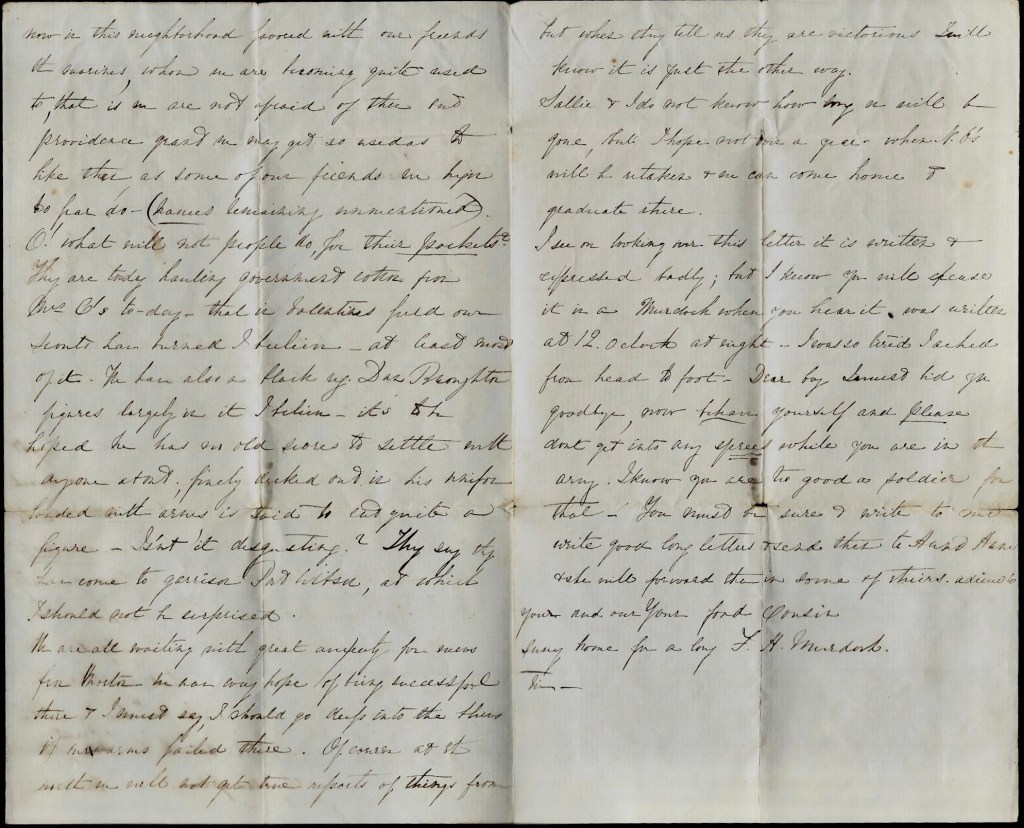 now in this neighborhood favored with our friends
the marines, whom we are becoming quite used
to, that is we are not afraid of them and
providence grant we may get so used as to
like them as some of our friends we hear
so far do - (names remaining unmentioned).
O. what will not people do, for their pockets?
They are today hauling government cotton from
Mrs C's to-day - that in Valentines field our
scouts have burned I believe - at least most
of it. We have also a black reg. Dan Broughton
figures largely in it I believe - it's to be
hoped he has no old score to settle with
anyone about; finely decked out in his uniform
loaded with arms is said to cut quite a
figure - Isn't it disgusting? They say they
have come to garrison Port Gibson, at which
I should not be surprised.
We are all waiting with great anxiety for news
from we have every hope of being successful
there & I must say, I should go deep into the blues
if our arms failed there. Of course at the
north we will not get true reports of things from
but when they tell us they are victorious I will
know it is just the other way.
Sallie & I do not know how long we will be
gone, but I hope not over a year - when N. O's
will be retaken & we can come home &
graduate there.
I see on looking over this letter it is written &
expressed badly; but I know you will excuse
it in a Murdock when you hear it was written
at 12. oclock at night - I was so tired I ached
from head to foot - Dear boy I must bid you
goodbye, now behave yourself and please
dont get into any sprees while you are in the
army. I know you are too good a soldier for
that - You must be sure & write to me
write good long letters & send them to Aunt Anne
& she will forward them in some of theirs. adieu to
your and our Your fond Cousin
sunny home for a long F. H. Murdock.
time -